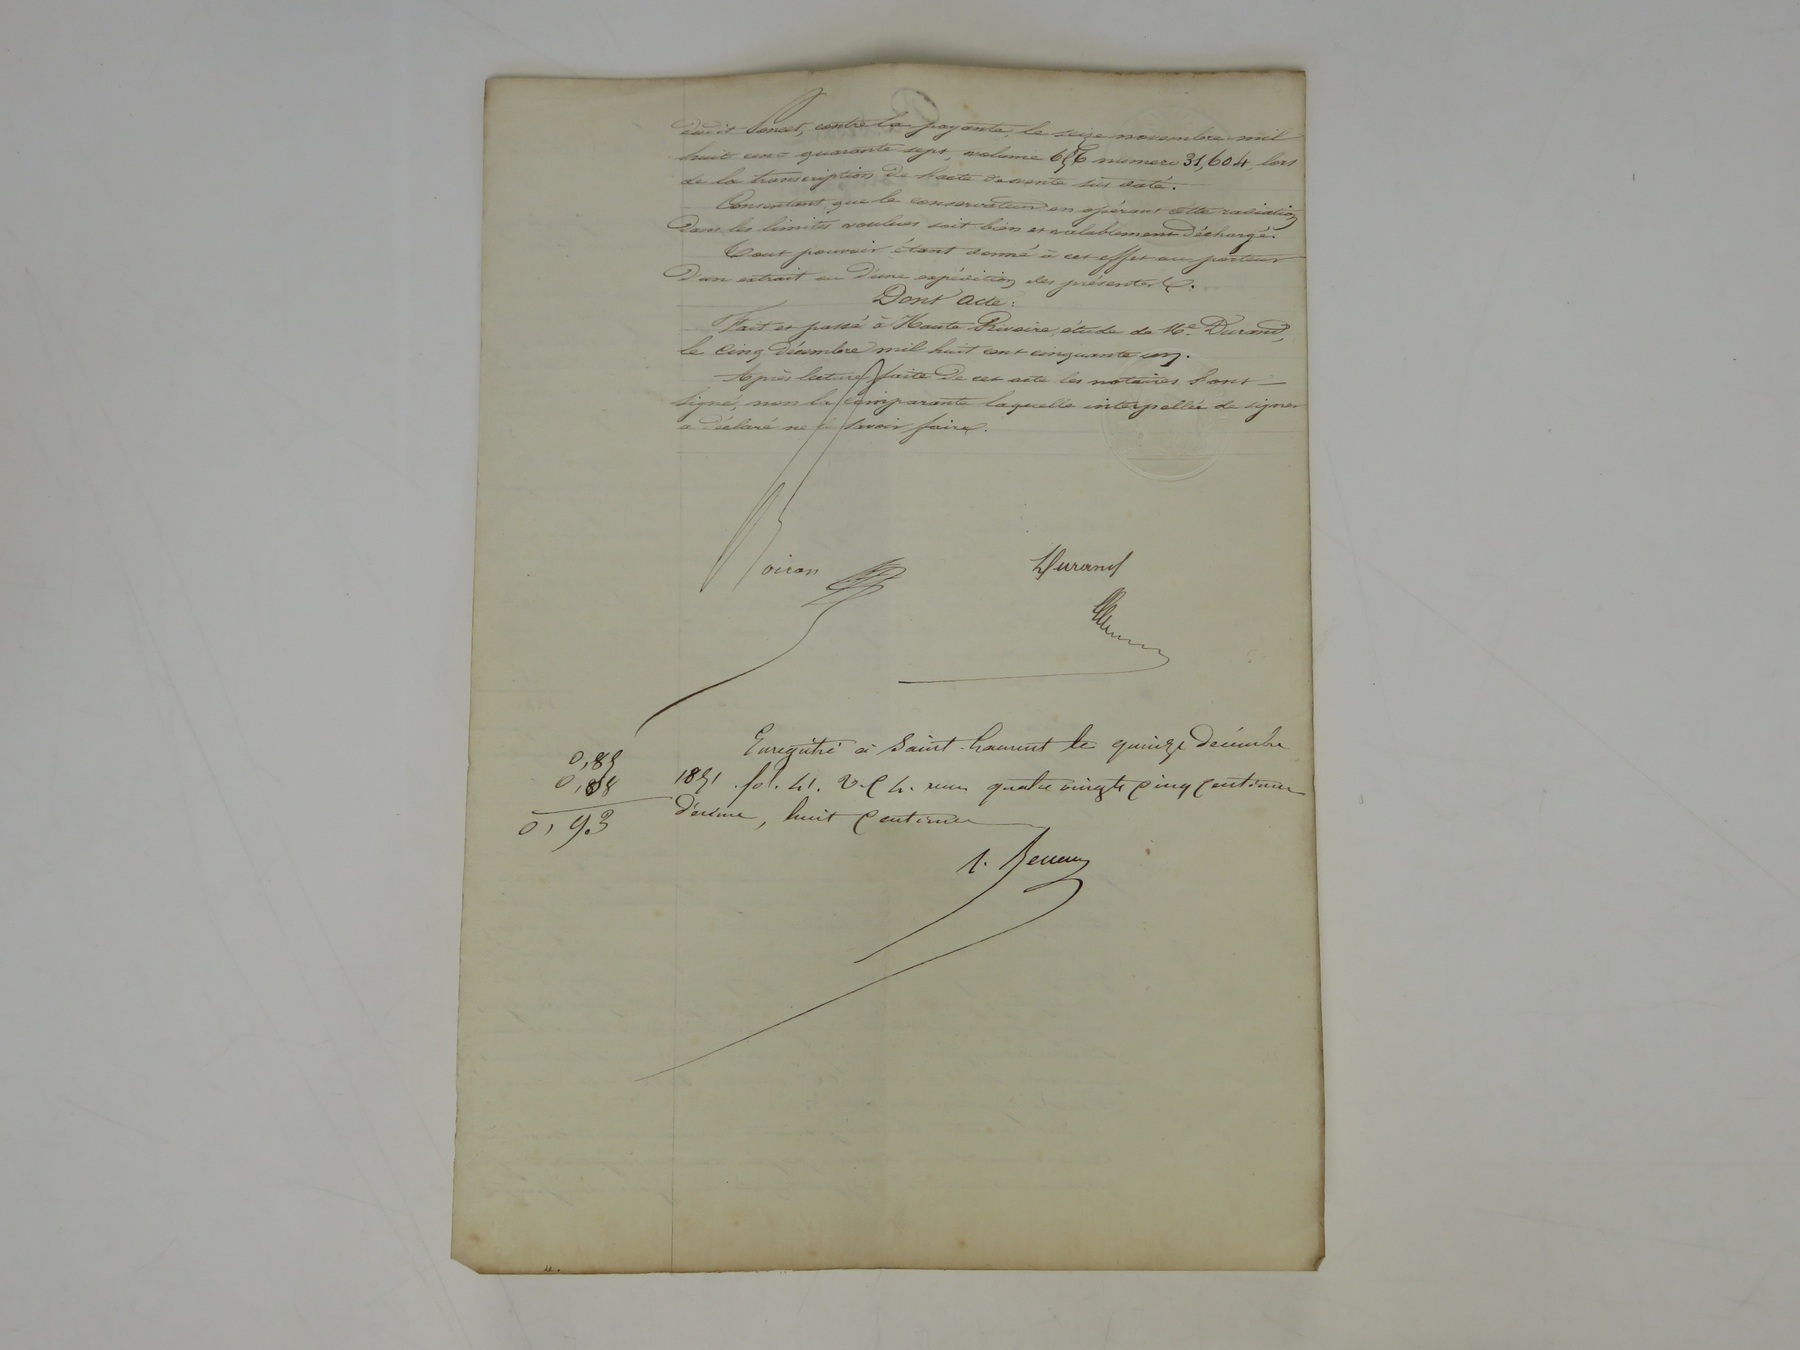 dudit Poncet, contre la payante, le seize novembre mil
huit cent quarante sept, volume 656 numero 31,604, lors
de la transcription de l'acte de vente sus daté.
Consentant que le conservateur en opérant cette radiation
dans les limites voulues soit bien et valablement déchargé.
Tout pouvoir étant donné à cet effet au porteur
d'un extrait ou d'une expédition des présentes.
Dont Acte:
Fait et passé à Haute Rivoire, étude de Me Durand,
le cinq décembre mil huit cent cinquante un.
Après lecture faite de cet acte les notaires sont
signé, non la comparante laquelle interpellée de signer
a déclaré ne le savoir faire.
Boiron
Durand
Enregistré à Saint-Laurent le quinze décembre
0,85
0,08
1851 fol. 41. V. C 4. reçu quatre vingts cinq centimes
0,93
décime, huit centimes